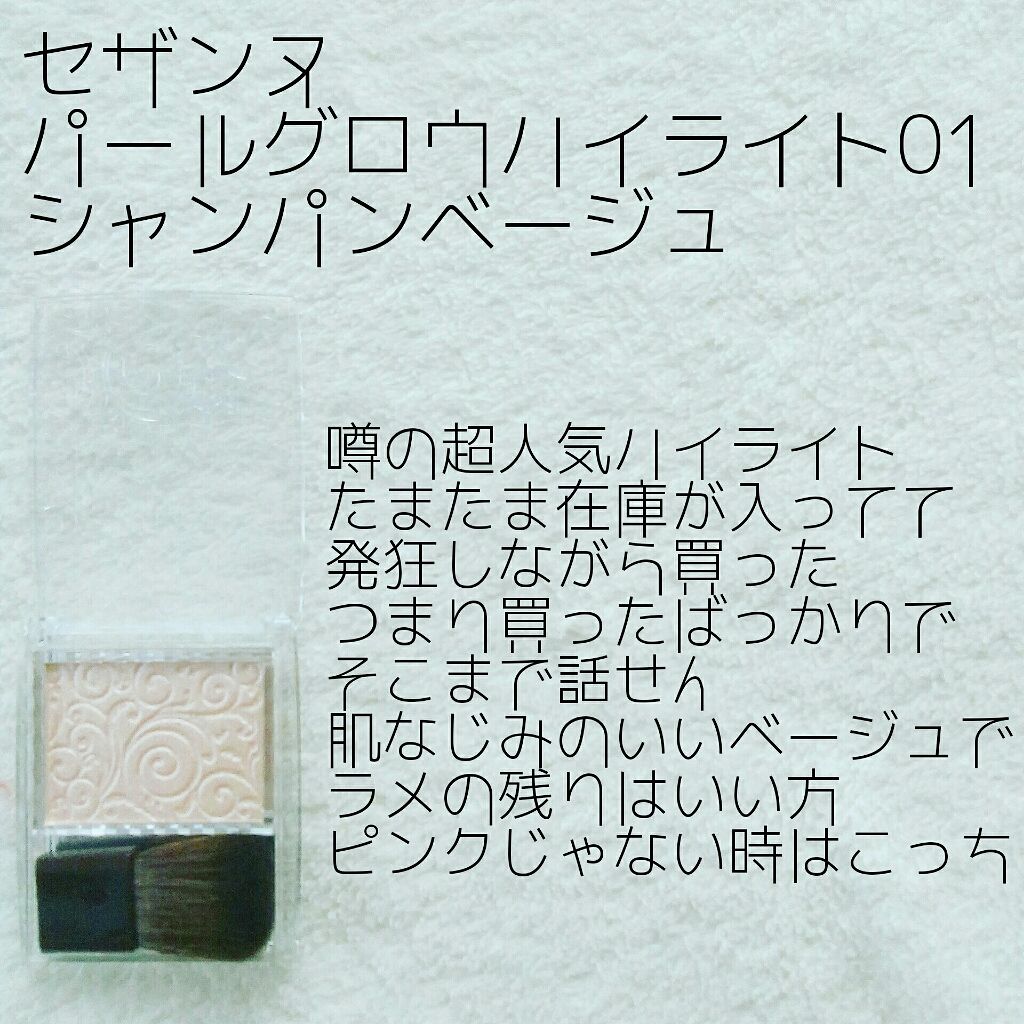 セザンヌ
パールグロウハイライト01
シャンパンベージュ
噂の超人気ハイライト
たまたま在庫が入ってて
発狂しながら買った
つまり買ったばっかりで
そこまで話せん
肌なじみのいいベージュで
ラメの残りはいい方
ピンクじゃない時はこっち